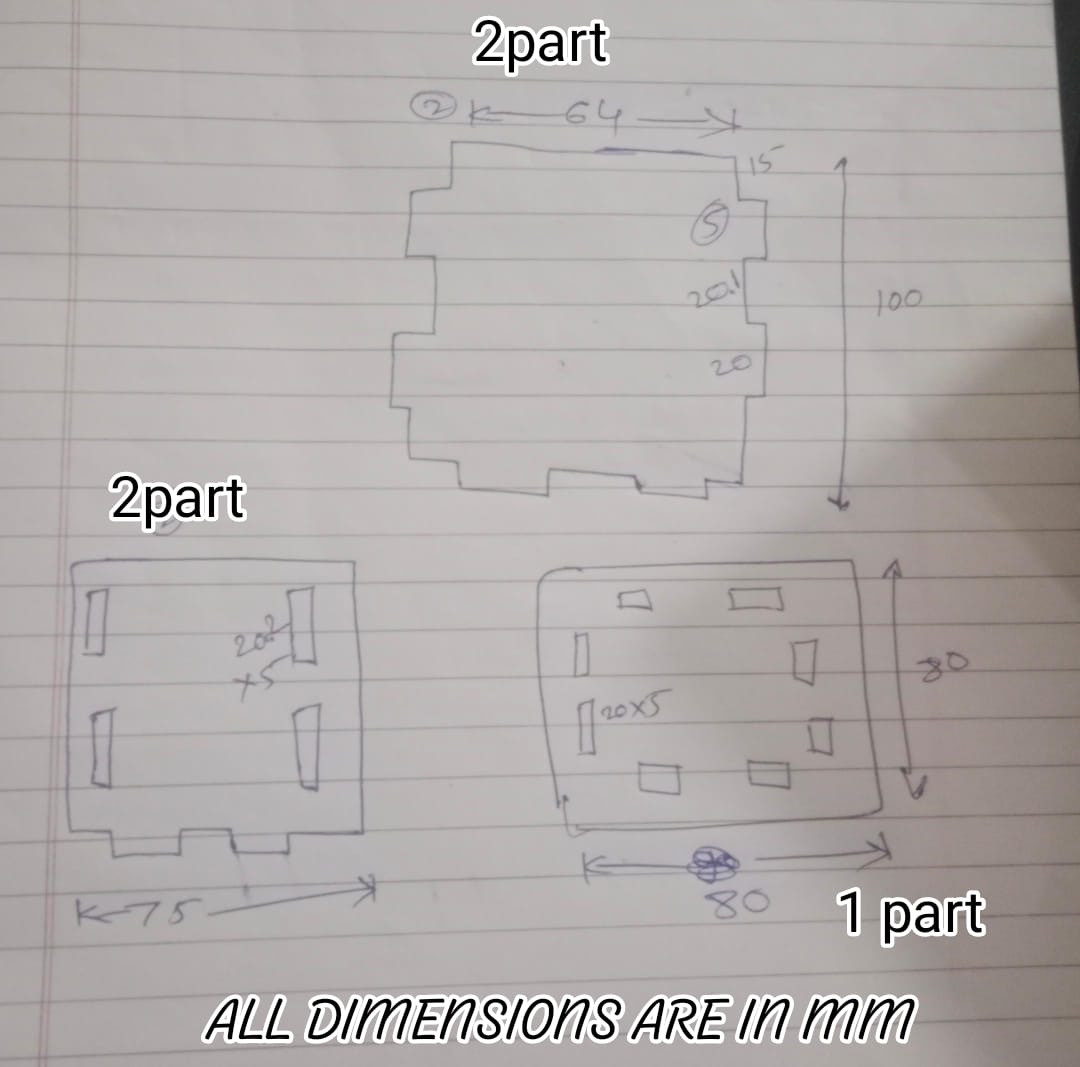 2part
② 64
15
⑤
20.1
100
20
2part
20²
×5
20×5
80
75
80
1 part
ALL DIMENSIONS ARE IN MM